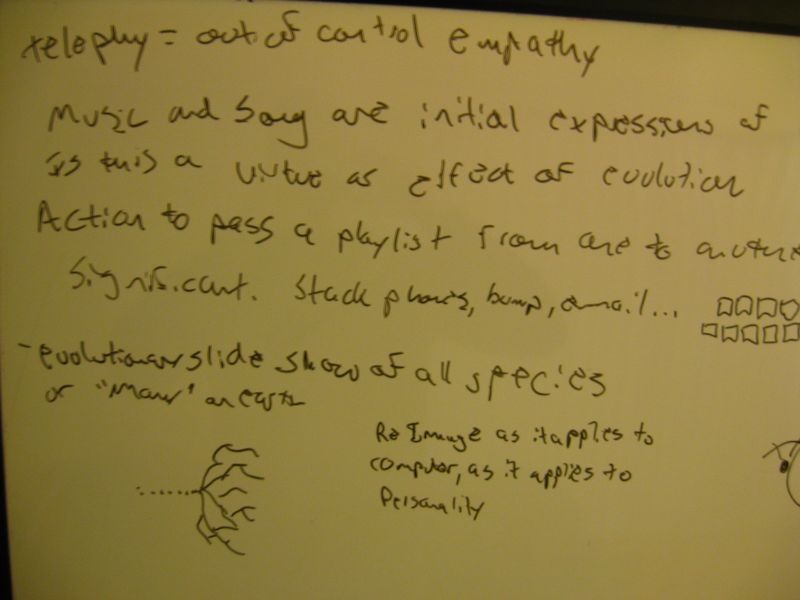 telepthy = out of control empathy
Music and Song are initial expressions of
Is this a virtue as effect of evolution
Action to pass a playlist from one to anothe
significant. Stack phones, bump, email...
- evolutionary slide show of all species
or "Many" on earth
Re Image as it applies to
computer, as it applies to
Personality